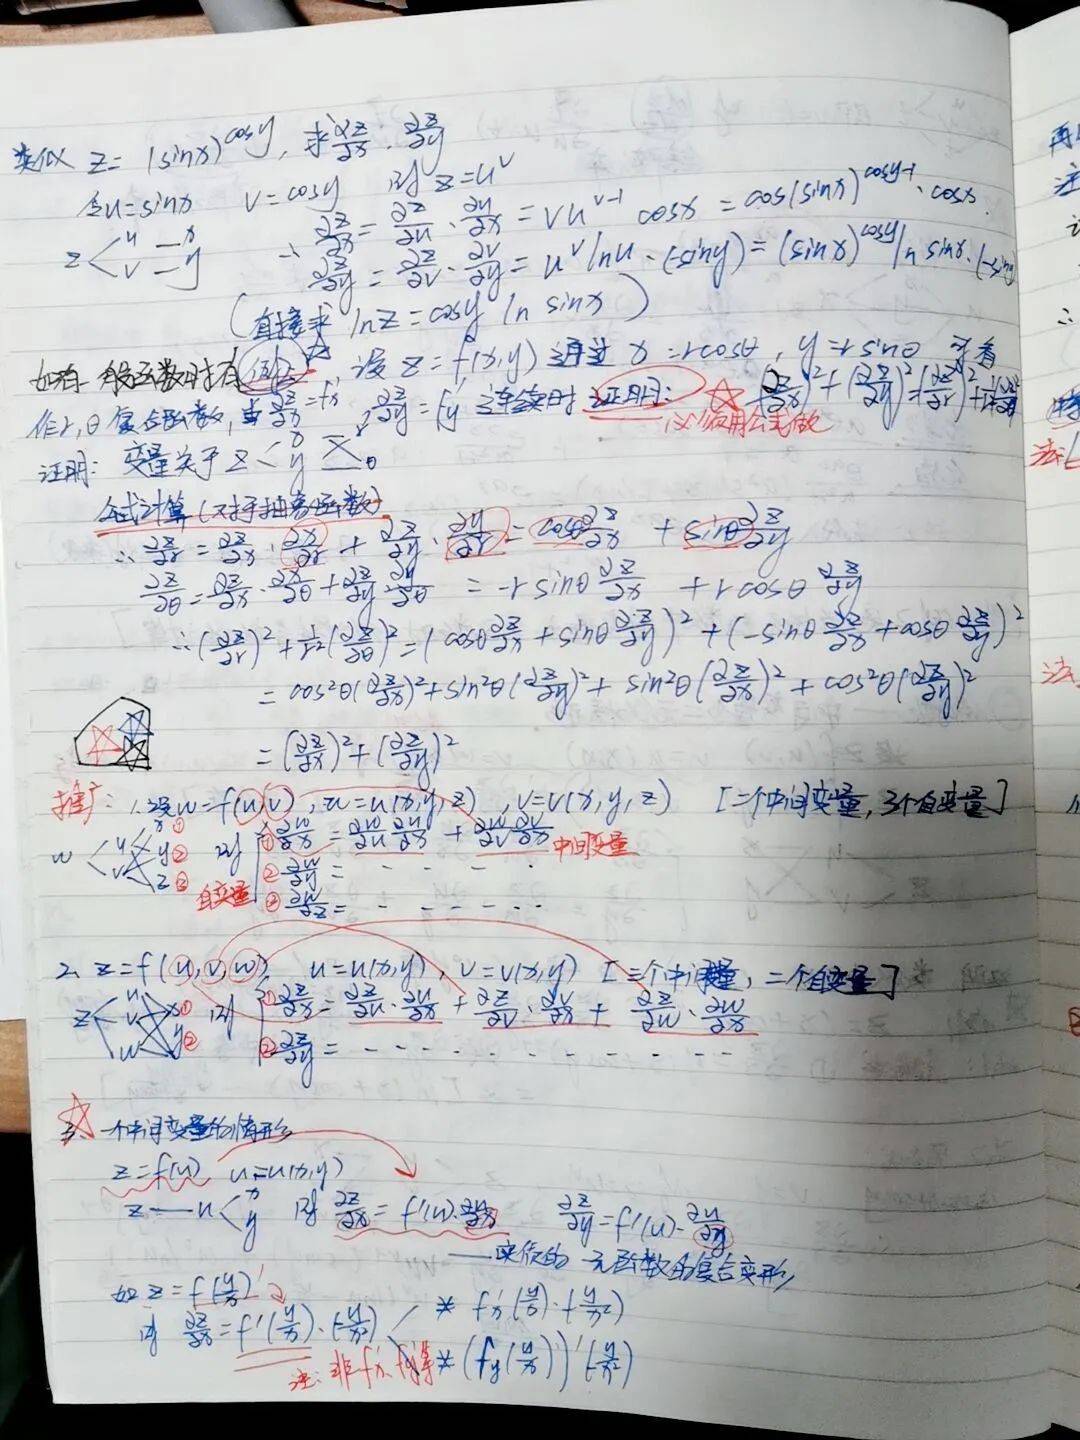 类似 z=(sinx)^cosy, 求∂z/∂x, ∂z/∂y
令u=sinx v=cosy 则 z=u^v
z<u—x v—y
∴ ∂z/∂x=∂z/∂u·∂u/∂x=vu^(v-1) cosx=cos(sinx)^(cosy-1)·cosx.
∂z/∂y=∂z/∂v·∂v/∂y=u^v lnu·(-siny)=(sinx)^cosy ln sinx·(-siny)
(直接求 lnz=cosy ln sinx)
如若一般函数时有 例2 设z=f(x,y)通过 x=rcosθ, y=rsinθ 可看
作r,θ复合函数, 且∂z/∂x=f'x ∂z/∂y=f'y 连续时 证明: (∂z/∂x)²+(∂z/∂y)²=(∂z/∂r)²+1/r²(∂z/∂θ)²
必须用公式做
证明: 变量关于 z<x y r θ
公式计算(对于抽象函数)
∴ ∂z/∂r=∂z/∂x·∂x/∂r+∂z/∂y·∂y/∂r=cosθ∂z/∂x+sinθ∂z/∂y
∂z/∂θ=∂z/∂x·∂x/∂θ+∂z/∂y·∂y/∂θ=-rsinθ∂z/∂x+rcosθ∂z/∂y
∴(∂z/∂r)²+1/r²(∂z/∂θ)²=(cosθ∂z/∂x+sinθ∂z/∂y)²+(-sinθ∂z/∂x+cosθ∂z/∂y)²
=cos²θ(∂z/∂x)²+sin²θ(∂z/∂y)²+sin²θ(∂z/∂x)²+cos²θ(∂z/∂y)²
=(∂z/∂x)²+(∂z/∂y)²
推广: 1.设w=f(u,v), u=u(x,y,z), v=v(x,y,z) [二个中间变量,3个自变量]
w<u v x① y② z③ 则 ①∂w/∂x=∂w/∂u ∂u/∂x+∂w/∂v ∂v/∂x 中间变量
②∂w/∂y= - - - ·
自变量 ③∂w/∂z= - - - - - - ··
2. z=f(u,v,w), u=u(x,y), v=v(x,y) [三个中间变量,二个自变量]
z<u v w x① y② 则 ①∂z/∂x=∂z/∂u·∂u/∂x+∂z/∂v·∂v/∂x+∂z/∂w·∂w/∂x
②∂z/∂y= - - - - - - - - - - - -
3、一个中间变量的情形
z=f(u) u=u(x,y)
z—u<x y 则 ∂z/∂x=f'(u)·∂u/∂x ∂z/∂y=f'(u)·∂u/∂y
——实质的一元函数的复合变形
如 z=f(y/x)
则 ∂z/∂x=f'(y/x)·(-y/x²) * f'x(y/x)·(-y/x²)
注: 非f'x, f'y等 * (fy(y/x))'(-y/x²)
再
注
∴
法
法